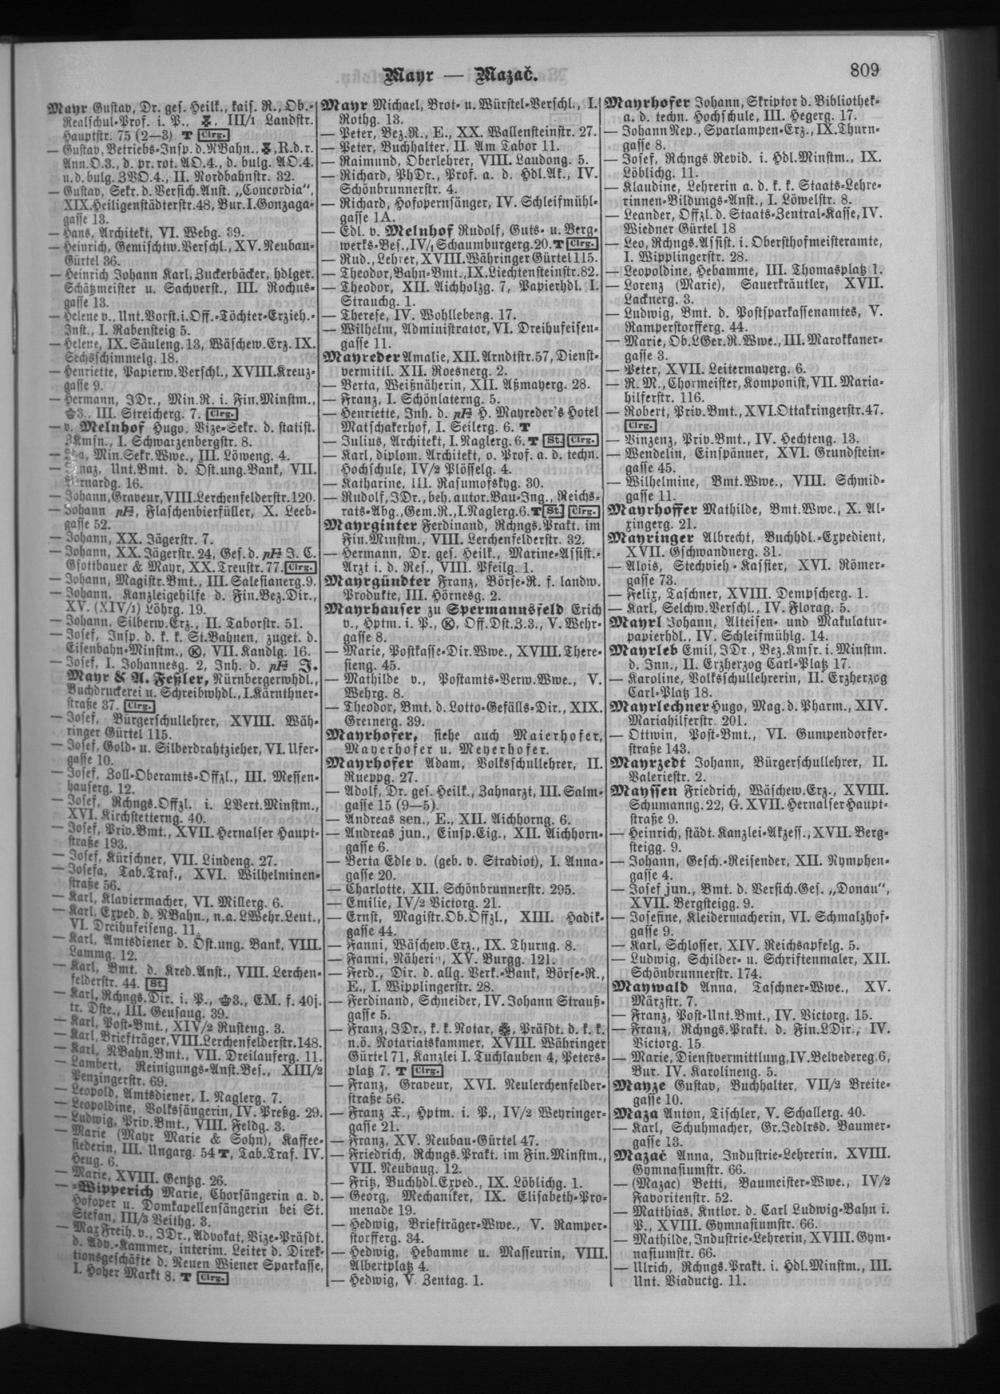 Mayr — Mazač.
809
Mayr Gustav, Dr. ges. Heilk., kais. R., Ob.-
Realschul-Prof. i. P., III/1 Landstr.
Hauptstr. 75 (2—3) T Clrg.
— Gustav, Betriebs-Insp. d. NBahn., R. d. r.
Ann.O.3., d. pr. rot. AO.4., d. bulg. AO.4.
u. d. bulg. ZVO.4., II. Nordbahnstr. 32.
— Gustav, Sekr. d. Versich.Anst. „Concordia“,
XIX.Heiligenstädterstr.48, Bur. I.Gonzaga-
gasse 13.
— Hans, Architekt, VI. Webg. 39.
— Heinrich, Gemischtw.Verschl., XV. Neubau-
Gürtel 36.
— Heinrich Johann Karl, Zuckerbäcker, hdlger.
Schätzmeister u. Sachverst., III. Rochus-
gasse 13.
— Helene v., Unt.Vorst. i. Off.-Töchter-Erzieh.-
Inst., I. Rabensteig 5.
— Helene, IX. Säuleng. 13, Wäschew.Erz. IX.
Sechsschimmelg. 18.
— Henriette, Papierw.Verschl., XVIII.Kreuz-
gasse 9.
— Hermann, JDr., Min.R. i. Fin.Minstm.,
3., III. Streicherg. 7. Clrg.
— v. Melnhof Hugo, Vize-Sekr. d. statist.
ZKmsn., I. Schwarzenbergstr. 8.
Min.Sekr.Wwe., III. Löweng. 4.
Unt.Bmt. d. Öst.ung.Bank, VII.
Bernardg. 16.
— Johann, Graveur, VIII. Lerchenfelderstr.120.
— Johann pH, Flaschenbierfüller, X. Leeb-
gasse 52.
— Johann, XX. Jägerstr. 7.
— Johann, XX. Jägerstr. 24, Ges. d. pH J. C.
Gsottbauer & Mayr, XX. Treustr. 77. Clrg.
— Johann, Magistr.Bmt., III. Salesianerg. 9.
— Johann, Kanzleigehilfe d. Fin.Bez.Dir.,
XV. (XIV/1) Löhrg. 19.
— Johann, Silberw.Erz., II. Taborstr. 51.
— Josef, Insp. d. k. k. St.Bahnen, zuget. d.
Eisenbahn-Minstm., VII. Kandlg. 16.
— Josef, I. Johannesg. 2, Inh. d. pH J.
Mayr & A. Feßler, Nürnbergerwhdl.,
Buchdruckerei u. Schreibwhdl., I.Kärnthner-
straße 37. Clrg.
— Josef, Bürgerschullehrer, XVIII. Wäh-
ringer Gürtel 115.
— Josef, Gold- u. Silberdrahtzieher, VI. Ufer-
gasse 10.
— Josef, Zoll-Oberamts-Offzl., III. Messen-
hauserg. 12.
— Josef, Rchngs.Offzl. i. LVert.Minstm.,
XVI. Kirchstetterng. 40.
— Josef, Priv.Bmt., XVII. Hernalser Haupt-
straße 193.
— Josef, Kürschner, VII. Lindeng. 27.
— Josefa, Tab.Traf., XVI. Wilhelminen-
straße 56.
— Karl, Klaviermacher, VI. Millerg. 6.
— Karl, Exped. d. NBahn., n.a. LWehr.Leut.,
VI. Dreihufeiseng. 11.
— Karl, Amtsdiener d. Öst.ung. Bank, VIII.
Lammg. 12.
— Karl, Bmt. d. Kred.Anst., VIII. Lerchen-
felderstr. 44. St.
— Karl, Rchngs.Dir. i. P., 3., EM. f. 40j.
tr. Dste., III. Geusaug. 39.
— Karl, Post-Bmt., XIV/2 Rusteng. 3.
— Karl, Briefträger, VIII. Lerchenfelderstr.148.
— Karl, NBahn.Bmt., VII. Dreilauferg. 11.
— Lambert, Reinigungs-Anst.Bes., XIII/2
Penzingerstr. 69.
— Leopold, Amtsdiener, I. Naglerg. 7.
— Leopoldine, Volkssängerin, IV. Preßg. 29.
— Ludwig, Priv.Bmt., VIII. Feldg. 3.
— Marie (Mayr Marie & Sohn), Kaffee-
siederin, III. Ungarg. 54 T, Tab.Traf. IV.
Heug. 6.
— Marie, XVIII. Gentzg. 26.
— -Wipperich Marie, Chorsängerin a. d.
Hofoper u. Domkapellensängerin bei St.
Stefan, III/3 Veithg. 3.
— Max Freih. v., JDr., Advokat, Vize-Präsdt.
d. Adv.-Kammer, interim. Leiter d. Direk-
tionsgeschäfte d. Neuen Wiener Sparkasse,
I. Hoher Markt 8. T Clrg.
Mayr Michael, Brot- u. Würstel-Verschl., I.
Rothg. 13.
— Peter, Bez.R., E., XX. Wallensteinstr. 27.
— Peter, Buchhalter, II. Am Tabor 11.
— Raimund, Oberlehrer, VIII. Laudong. 5.
— Richard, PhDr., Prof. a. d. Hdl.Ak., IV.
Schönbrunnerstr. 4.
— Richard, Hofopernsänger, IV. Schleifmühl-
gasse 1A.
— Edl. v. Melnhof Rudolf, Guts- u. Berg-
werks-Bes., IV/1 Schaumburgerg. 20. T Clrg.
— Rud., Lehrer, XVIII. Währinger Gürtel 115.
— Theodor, Bahn-Bmt., IX. Liechtensteinstr. 82.
— Theodor, XII. Aichholzg. 7, Papierhdl. I.
Strauchg. 1.
— Therese, IV. Wohllebeng. 17.
— Wilhelm, Administrator, VI. Dreihufeisen-
gasse 11.
Mayreder Amalie, XII. Arndtstr. 57, Dienst-
vermittl. XII. Roesnerg. 2.
— Berta, Weißnäherin, XII. Aßmayerg. 28.
— Franz, I. Schönlaterng. 5.
— Henriette, Inh. d. pH H. Mayreder's Hotel
Matschakerhof, I. Seilerg. 6. T
— Julius, Architekt, I. Naglerg. 6. T St. Clrg.
— Karl, diplom. Architekt, o. Prof. a. d. techn.
Hochschule, IV/2 Plösselg. 4.
— Katharine, III. Rasumofskyg. 30.
— Rudolf, JDr., beh. autor. Bau-Ing., Reichs-
rats-Abg., Gem.R., I. Naglerg. 6. T St. Clrg.
Mayrginter Ferdinand, Rchngs.Prakt. im
Fin.Minstm., VIII. Lerchenfelderstr. 32.
— Hermann, Dr. ges. Heilk., Marine-Assist.-
Arzt i. d. Res., VIII. Pfeilg. 1.
Mayrgündter Franz, Börse-R. f. landw.
Produkte, III. Hörnesg. 2.
Mayrhauser zu Spermannsfeld Erich
v., Hptm. i. P., Off.Dst.Z.3., V. Wehr-
gasse 8.
— Marie, Postkasse-Dir.Wwe., XVIII. There-
sieng. 45.
— Mathilde v., Postamts-Verw.Wwe., V.
Wehrg. 8.
— Theodor, Bmt. d. Lotto-Gefälls-Dir., XIX.
Greinerg. 39.
Mayrhofer, siehe auch Maierhofer,
Mayerhofer u. Meyerhofer.
Mayrhofer Adam, Volksschullehrer, II.
Rueppg. 27.
— Adolf, Dr. ges. Heilk., Zahnarzt, III. Salm-
gasse 15 (9—5).
— Andreas sen., E., XII. Aichhorng. 6.
— Andreas jun., Einsp.Eig., XII. Aichhorn-
gasse 6.
— Berta Edle v. (geb. v. Stradiot), I. Anna-
gasse 20.
— Charlotte, XII. Schönbrunnerstr. 295.
— Emilie, IV/2 Victorg. 21.
— Ernst, Magistr.Ob.Offzl., XIII. Hadik-
gasse 44.
— Fanni, Wäschew.Erz., IX. Thurng. 8.
— Fanni, Näherin, XV. Burgg. 121.
— Ferd., Dir. d. allg. Verk.-Bank, Börse-R.,
E., I. Wipplingerstr. 28.
— Ferdinand, Schneider, IV. Johann Strauß-
gasse 5.
— Franz, JDr., k. k. Notar, Präsdt. d. k. k.
n.ö. Notariatskammer, XVIII. Währinger
Gürtel 71, Kanzlei I. Tuchlauben 4, Peters-
platz 7. T Clrg.
— Franz, Graveur, XVI. Neulerchenfelder-
straße 56.
— Franz X., Hptm. i. P., IV/2 Weyringer-
gasse 21.
— Franz, XV. Neubau-Gürtel 47.
— Friedrich, Rchngs.Prakt. im Fin.Minstm.,
VII. Neubaug. 12.
— Fritz, Buchhdl.Exped., IX. Löblichg. 1.
— Georg, Mechaniker, IX. Elisabeth-Pro-
menade 19.
— Hedwig, Briefträger-Wwe., V. Ramper-
storfferg. 34.
— Hedwig, Hebamme u. Masseurin, VIII.
Albertplatz 4.
— Hedwig, V. Zentag. 1.
Mayrhofer Johann, Skriptor d. Bibliothek-
a. d. techn. Hochschule, III. Hegerg. 17.
— Johann Nep., Sparlampen-Erz., IX. Thurn-
gasse 8.
— Josef, Rchngs.Revid. i. Hdl.Minstm., IX.
Löblichg. 11.
— Klaudine, Lehrerin a. d. k. k. Staats-Lehre-
rinnen-Bildungs-Anst., I. Löwelstr. 8.
— Leander, Offzl. d. Staats-Zentral-Kasse, IV.
Wiedner Gürtel 18
— Leo, Rchngs.Assist. i. Obersthofmeisteramte,
I. Wipplingerstr. 28.
— Leopoldine, Hebamme, III. Thomasplatz 1.
— Lorenz (Marie), Sauerkräutler, XVII.
Lacknerg. 3.
— Ludwig, Bmt. d. Postsparkassenamtes, V.
Ramperstorfferg. 44.
— Marie, Ob.LGer.R.Wwe., III. Marokkaner-
gasse 3.
— Peter, XVII. Leitermayerg. 6.
— R. M., Chormeister, Komponist, VII. Maria-
hilferstr. 116.
— Robert, Priv.Bmt., XVI. Ottakringerstr. 47.
Clrg.
— Vinzenz, Priv.Bmt., IV. Hechteng. 13.
— Wendelin, Einspänner, XVI. Grundstein-
gasse 45.
— Wilhelmine, Bmt.Wwe., VIII. Schmid-
gasse 11.
Mayrhoffer Mathilde, Bmt.Wwe., X. Al-
xingerg. 21.
Mayringer Albrecht, Buchhdl.-Expedient,
XVII. Gschwandnerg. 31.
— Alois, Stechvieh-Kassier, XVI. Römer-
gasse 73.
— Felix, Taschner, XVIII. Dempscherg. 1.
— Karl, Selchw.Verschl., IV. Florag. 5.
Mayrl Johann, Alteisen- und Makulatur-
papierhdl., IV. Schleifmühlg. 14.
Mayrleb Emil, JDr., Bez.Kmsr. i. Minstm.
d. Inn., II. Erzherzog Carl-Platz 17.
— Karoline, Volksschullehrerin, II. Erzherzog
Carl-Platz 18.
Mayrlechner Hugo, Mag. d. Pharm., XIV.
Mariahilferstr. 201.
— Ottwin, Post-Bmt., VI. Gumpendorfer-
straße 143.
Mayrzedt Johann, Bürgerschullehrer, II.
Valeriestr. 2.
Mayssen Friedrich, Wäschew.Erz., XVIII.
Schumanng. 22, G. XVII. Hernalser Haupt-
straße 9.
— Heinrich, städt. Kanzlei-Akzess., XVII. Berg-
steigg. 9.
— Johann, Gesch.-Reisender, XII. Nymphen-
gasse 4.
— Josef jun., Bmt. d. Versich.Ges. „Donau“,
XVII. Bergsteigg. 9.
— Josefine, Kleidermacherin, VI. Schmalzhof-
gasse 9.
— Karl, Schlosser, XIV. Reichsapfelg. 5.
— Ludwig, Schilder- u. Schriftenmaler, XII.
Schönbrunnerstr. 174.
Maywald Anna, Taschner-Wwe., XV.
Märzstr. 7.
— Franz, Post-Unt.Bmt., IV. Victorg. 15.
— Franz, Rchngs.Prakt. d. Fin.LDir., IV.
Victorg. 15
— Marie, Dienstvermittlung, IV. Belvedereg. 6,
Bur. IV. Karolineng. 5.
Mayze Gustav, Buchhalter, VII/2 Breite-
gasse 10.
Maza Anton, Tischler, V. Schallerg. 40.
— Karl, Schuhmacher, Gr.Jedlrsd. Baumer-
gasse 13.
Mazač Anna, Industrie-Lehrerin, XVIII.
Gymnasiumstr. 66.
— (Mazac) Betti, Baumeister-Wwe., IV/2
Favoritenstr. 52.
— Matthias, Kutlor. d. Carl Ludwig-Bahn i.
P., XVIII. Gymnasiumstr. 66.
— Mathilde, Industrie-Lehrerin, XVIII. Gym-
nasiumstr. 66.
— Ulrich, Rchngs.Prakt. i. Hdl.Minstm., III.
Unt. Viaductg. 11.